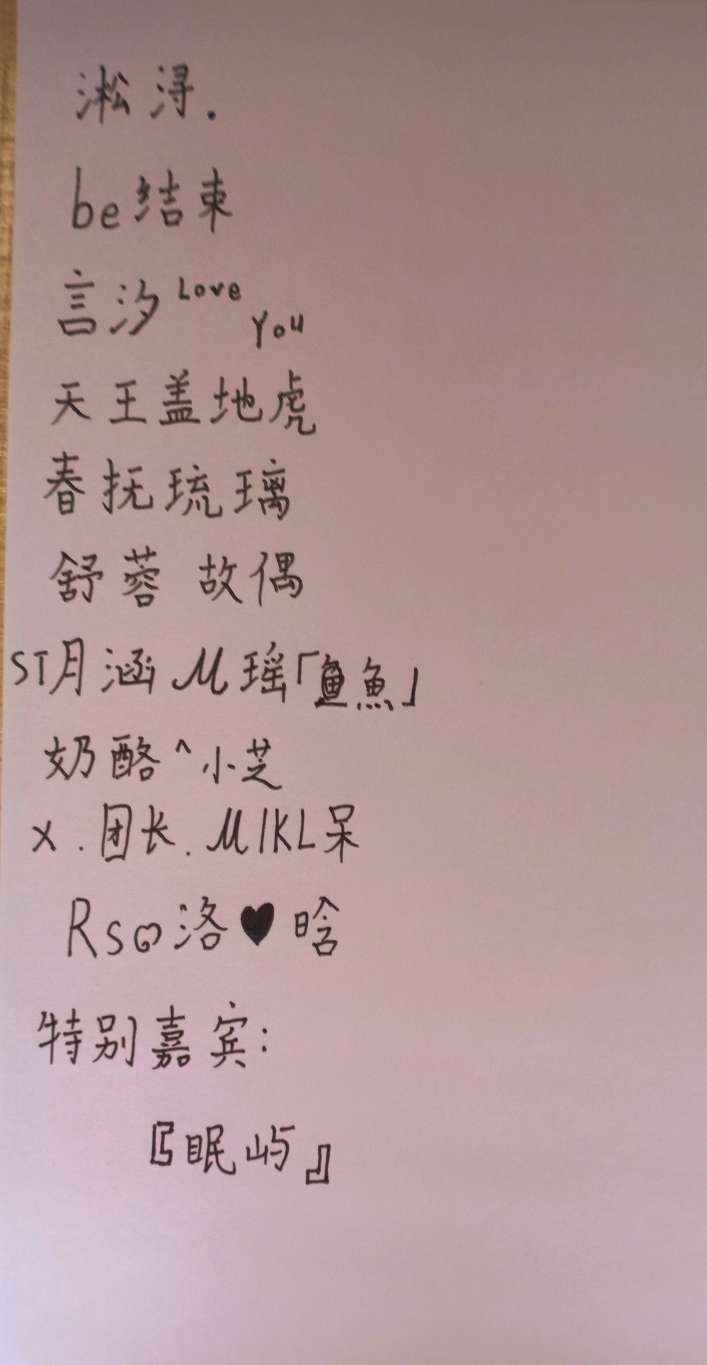 淞浔.
be结束
言汐 Love You
天王盖地虎
春抚琉璃
舒蓉 故偶
ST月涵 M瑶「鱼魚」
奶酪^小芝
x.团长.MIKL呆
Rs 洛♥晗
特别嘉宾:
『眠屿』